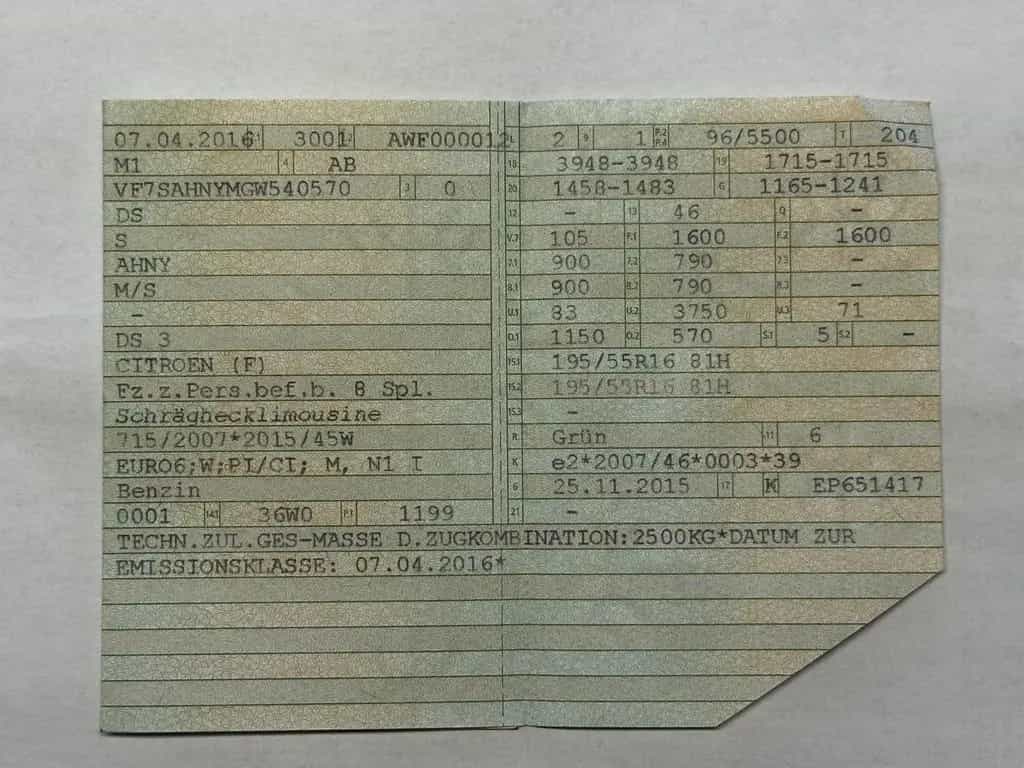 07.04.2016 2.1 3001 2.2 AWF000012
M1 4 AB
VF7SAHNYMGW540570 3 0
DS
S
AHNY
M/S
-
DS 3
CITROEN (F)
Fz.z.Pers.bef.b. 8 Spl.
Schräghecklimousine
715/2007*2015/45W
EURO6;W;PI/CI; M, N1 I
Benzin
0001 14.1 36W0 P.1 1199
L 2 9 1 P.2 P.4 96/5500 T 204
18 3948-3948 19 1715-1715
20 1458-1483 G 1165-1241
12 - 13 46 Q -
V.7 105 F.1 1600 F.2 1600
7.1 900 7.2 790 7.3 -
8.1 900 8.2 790 8.3 -
U.1 83 U.2 3750 U.3 71
O.1 1150 O.2 570 S.1 5 S.2 -
15.1 195/55R16 81H
15.2 195/55R16 81H
15.3 -
R Grün 11 6
K e2*2007/46*0003*39
6 25.11.2015 17 K EP651417
21 -
TECHN.ZUL.GES-MASSE D.ZUGKOMBINATION:2500KG*DATUM ZUR
EMISSIONSKLASSE: 07.04.2016*